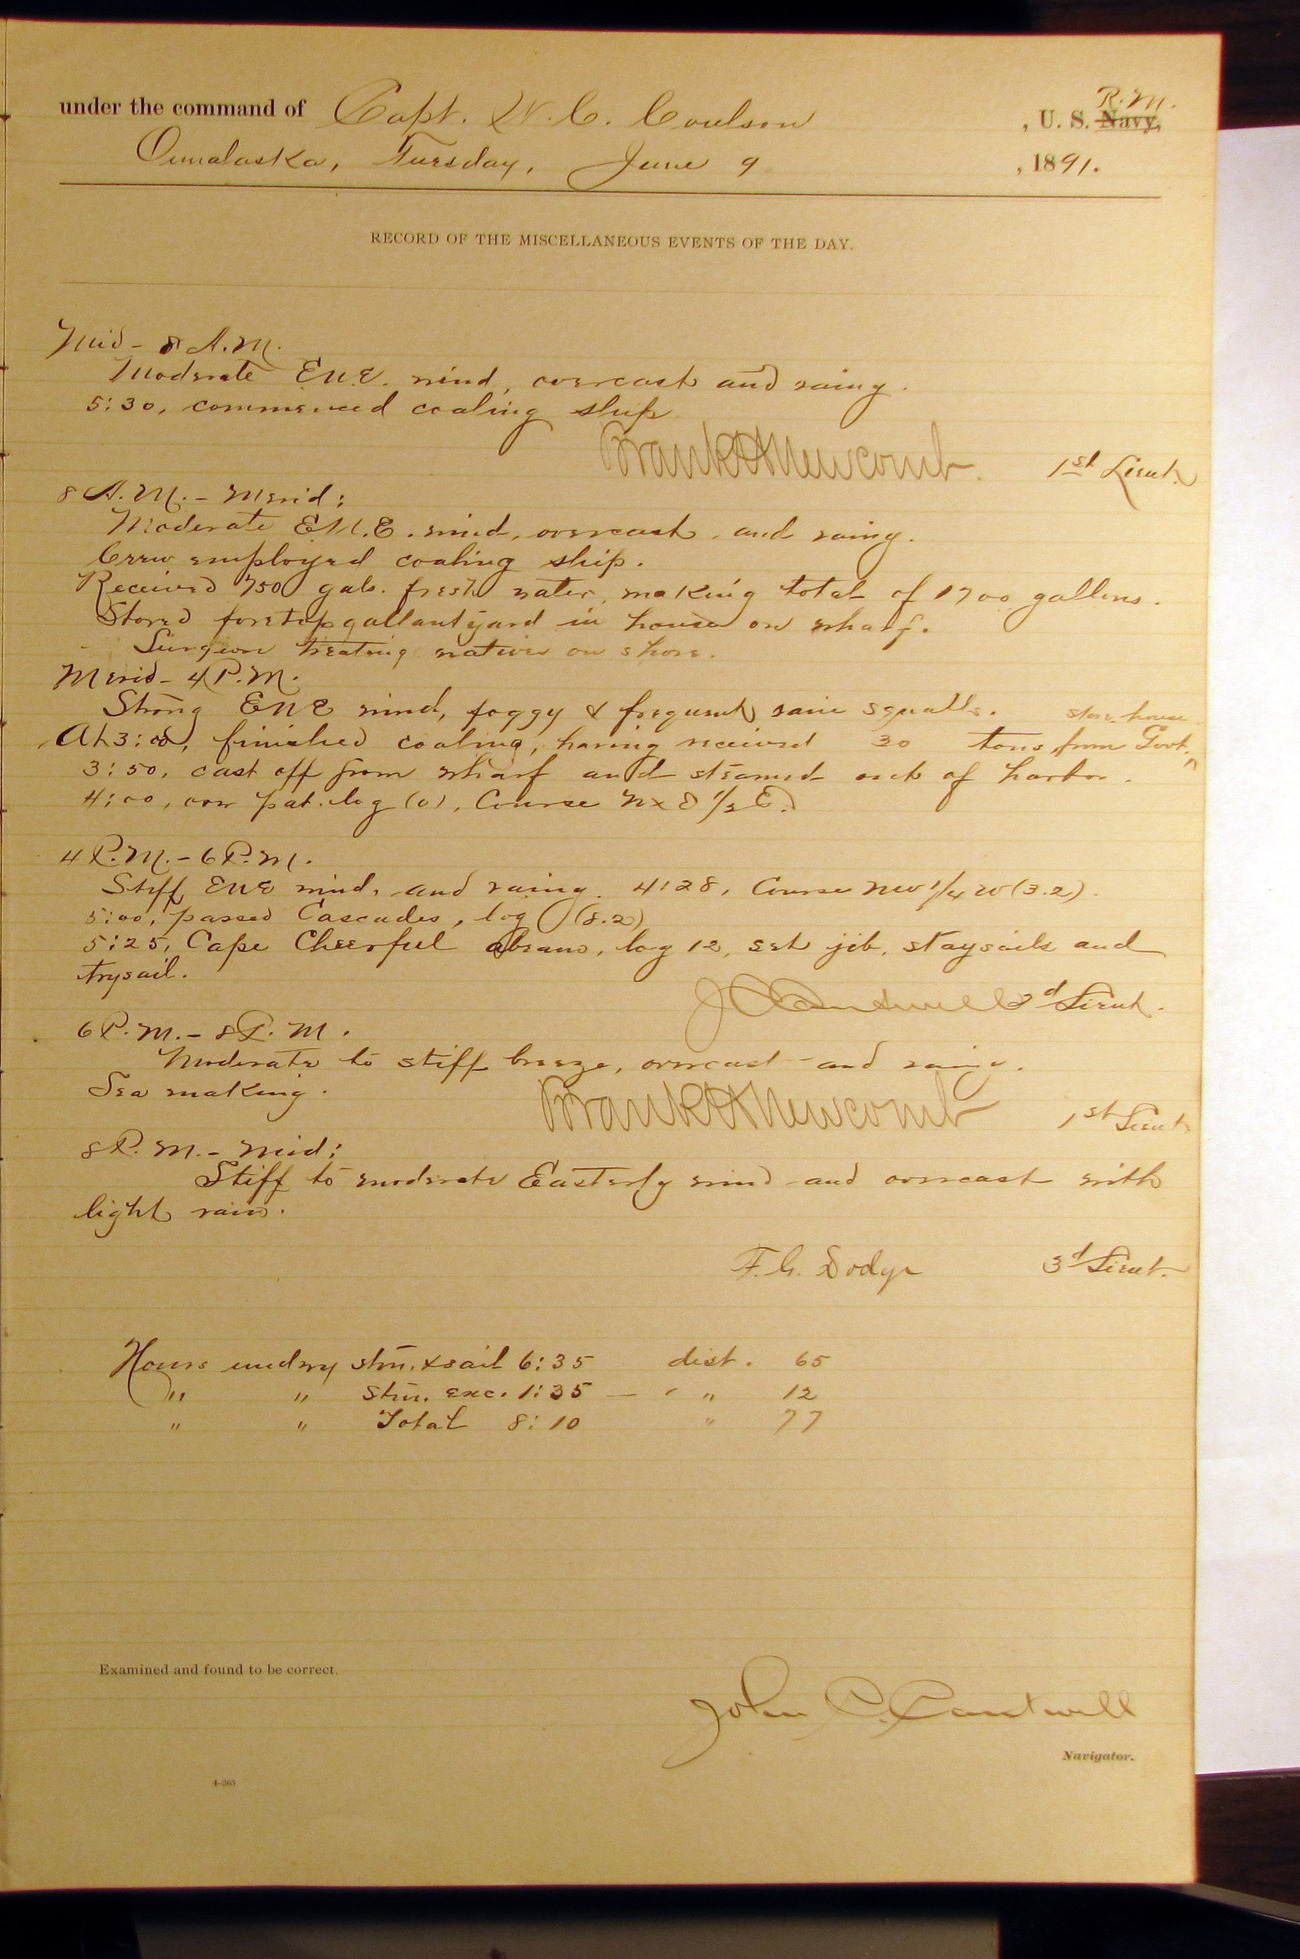 under the command of Capt. W. C. Coulson , U. S. Navy, R. M.
Ounalaska, Tuesday, June 9 , 1891.
RECORD OF THE MISCELLANEOUS EVENTS OF THE DAY.
Mid - 8 A.M.
Moderate E.N.E. wind, overcast and rainy.
5:30, commenced coaling ship
Frank H Newcomb. 1st Lieut.
8 A.M. - Merid:
Moderate E.N.E. wind, overcast and rainy.
Crew employed coaling ship.
Received 750 gals. fresh water, making total of 1700 gallons.
Stored foretopgallantyard in house on wharf.
Surgeon treating natives on shore.
Merid - 4 P.M.
Strong ENE wind, foggy & frequent rain squalls. store house
At 3:00, finished coaling, having received 30 tons from Govt. ^
3:50, cast off from wharf and steamed out of harbor.
4:00, over pat. log (0), Course N x E 1/2 E.
4 P.M. - 6 P.M.
Stiff ENE wind, and rainy. 4:28, Course NW 1/4 W (3.2).
5:00, passed Cascades, log (8.2)
5:25, Cape Cheerful abeam, log 12, set jib, staysails and
trysail.
J C Cantwell 2d Lieut.
6 P.M. - 8 P.M.
Moderate to stiff breeze, overcast and rainy.
Sea making.
Frank H Newcomb 1st Lieut
8 P.M. - Mid:
Stiff to moderate Easterly wind and overcast with
light rain.
F. G. Dodge 3d Lieut.
Hours underwy stm. & sail 6:35 dist. 65
" " stm. exc. 1:35 — " 12
" " Total 8:10 " 77
Examined and found to be correct.
John C. Cantwell
Navigator.
4-265